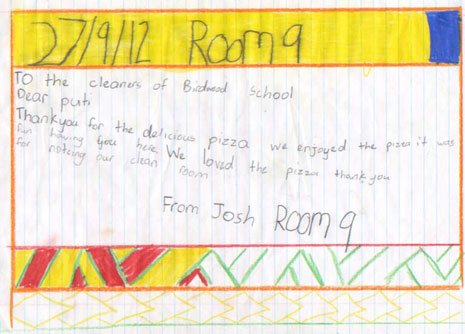 27/9/12 Room 9
TO the cleaners of Birdwood School
Dear puti
Thankyou for the delicious pizza we enjoyed the pizza it was
fun having you here. We loved the pizza thank you
for noticing our clean room
From Josh Room 9